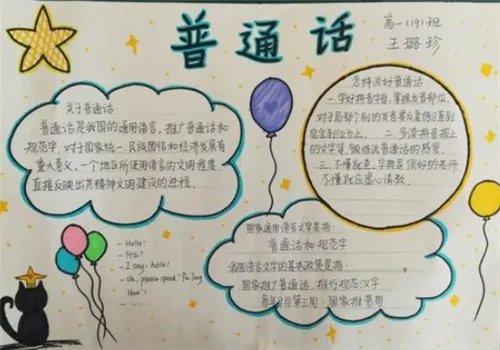 普通话
高一(19)班
王璐珍
关于普通话:
普通话是我国的通用语言,推广普通话和
规范字,对于国家统一、民族团结和经济发展有
重大意义。一个地区所使用语言的文明程度
直接反映出其精神文明建设的进程。
怎样讲好普通话
一、学好拼音字母,掌握发音部位,
对于局部个别的发音要反复练习直到
完全到位为止。 二、多读拼音报上
的文字等,锻炼说普通话的感觉。
三、不懂就查,字典是很好的老师
不懂就应虚心请教。
国家通用语言文字是指:
普通话和规范字
我国语言文字的基本政策是指:
国家推广普通话,推行规范汉字
每年9月第三周:国家推普周
- Hello!
- I say: hello!
- please speak